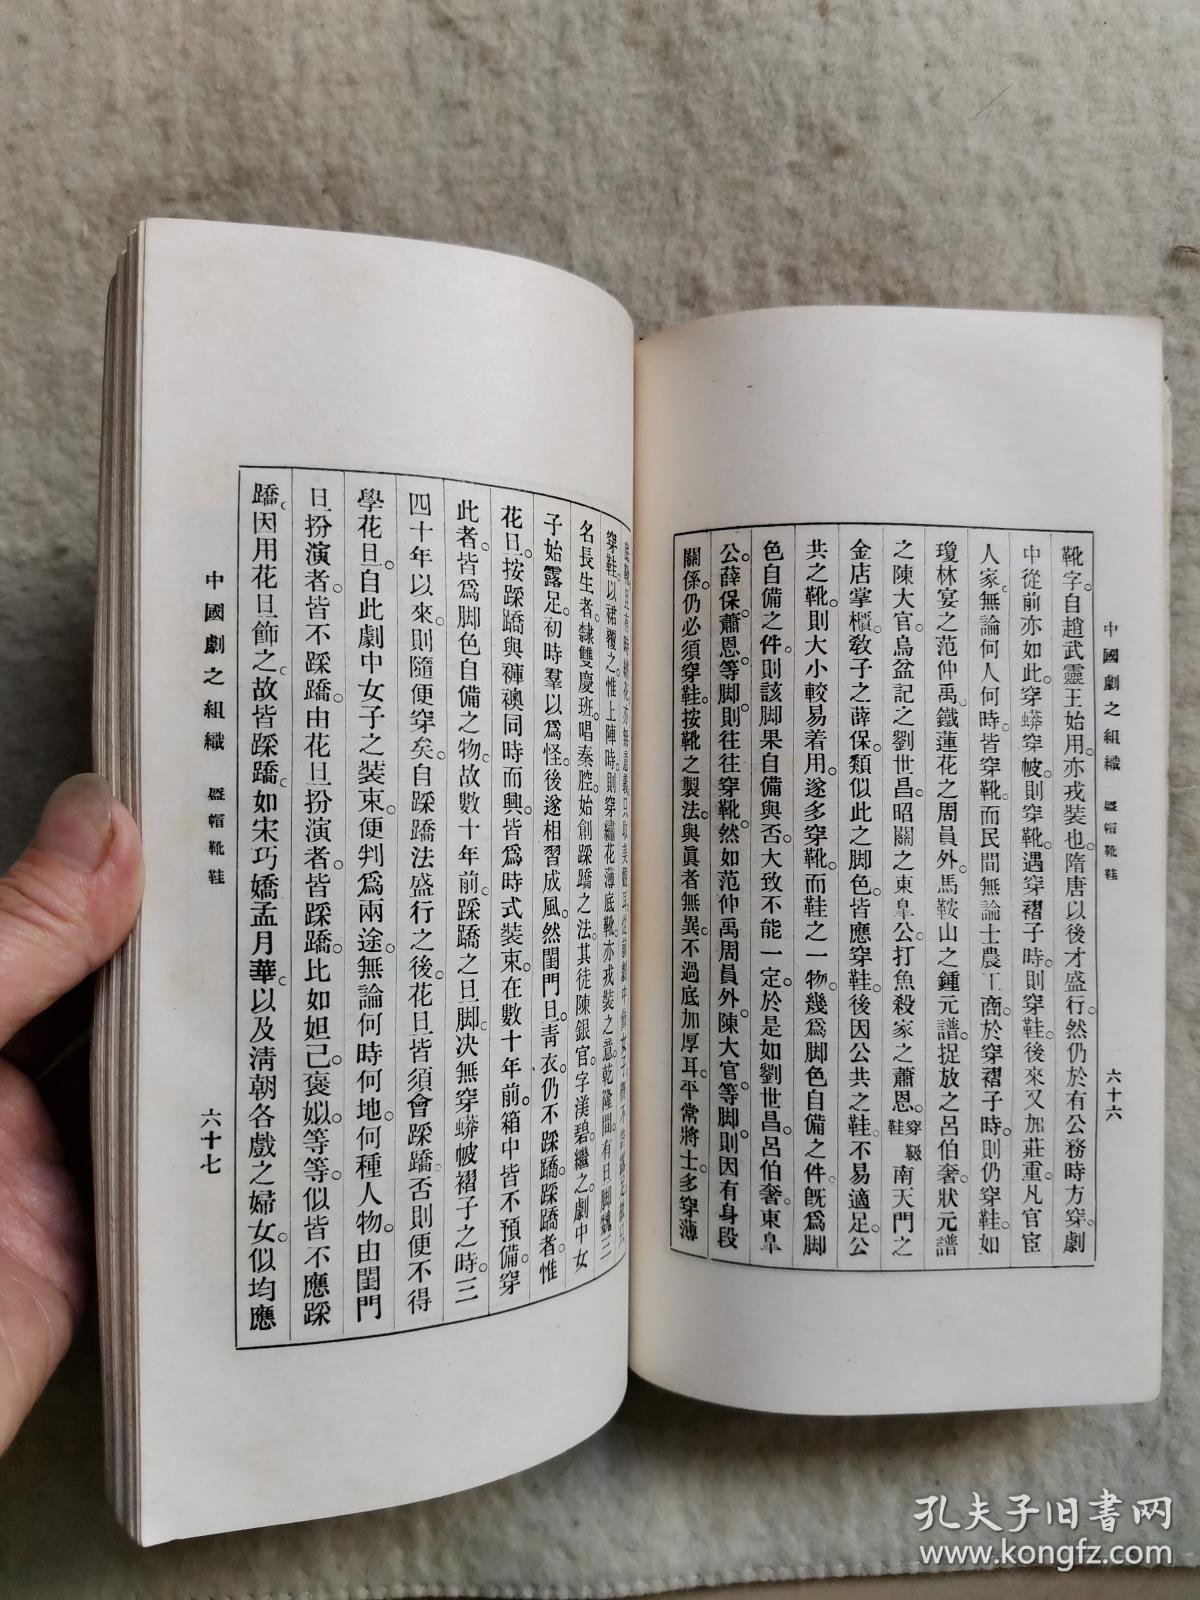 中國劇之組織 盔帽靴鞋 六十六
靴字。自趙武靈王始用。亦戎裝也。隋唐以後才盛行。然仍於有公務時方穿。劇
中從前亦如此。穿蟒穿帔。則穿靴。遇穿褶子時。則穿鞋。後來又加莊重。凡官宦
人家。無論何人何時。皆穿靴。而民間無論士農工商。於穿褶子時。則仍穿鞋。如
瓊林宴之范仲禹。鐵蓮花之周員外。馬鞍山之鍾元譜。捉放之呂伯奢。狀元譜
之陳大官。烏盆記之劉世昌。昭關之東臯公。打魚殺家之蕭恩。穿靸鞋南天門之
金店掌櫃。教子之薛保。類似此之脚色。皆應穿鞋。後因公共之鞋。不易適足。公
共之靴。則大小較易着用。遂多穿靴。而鞋之一物。幾爲脚色自備之件。旣爲脚
色自備之件。則該脚果自備與否。大致不能一定。於是如劉世昌。呂伯奢。東臯
公。薛保。蕭恩。等脚。則往往穿靴。然如范仲禹。周員外。陳大官。等脚。則因有身段
關係。仍必須穿鞋。按靴之製法。與眞者無異。不過底加厚耳。平常將士。多穿薄
穿鞋。以裙覆之。惟上陣時。則穿繡花薄底靴。亦戎裝之意。乾隆間。有日脚魏三
名長生者。隸雙慶班。唱秦腔。始創踩蹻之法。其徒陳銀官。字渼碧。繼之。劇中女
子始露足。初時羣以爲怪。後遂相習成風。然閨門旦。靑衣。仍不踩蹻。踩蹻者。惟
花旦。按踩蹻與褲襖同時而興。皆爲時式裝束。在數十年前。箱中皆不預備。穿
此者。皆爲脚色自備之物。故數十年前。踩蹻之旦脚。决無穿蟒帔褶子之時。三
四十年以來。則隨便穿矣。自踩蹻法盛行之後。花旦皆須會踩蹻。否則便不得
學花旦。自此劇中女子之裝束。便判爲兩途。無論何時何地。何種人物。由閨門
旦扮演者。皆不踩蹻。由花旦扮演者。皆踩蹻。比如妲己。褒姒。等等。似皆不應踩
蹻。因用花旦飾之。故皆踩蹻。如宋巧嬌孟月華。以及淸朝各戲之婦女。似均應
中國劇之組織 盔帽靴鞋 六十七
孔夫子旧書网
www.kongfz.com